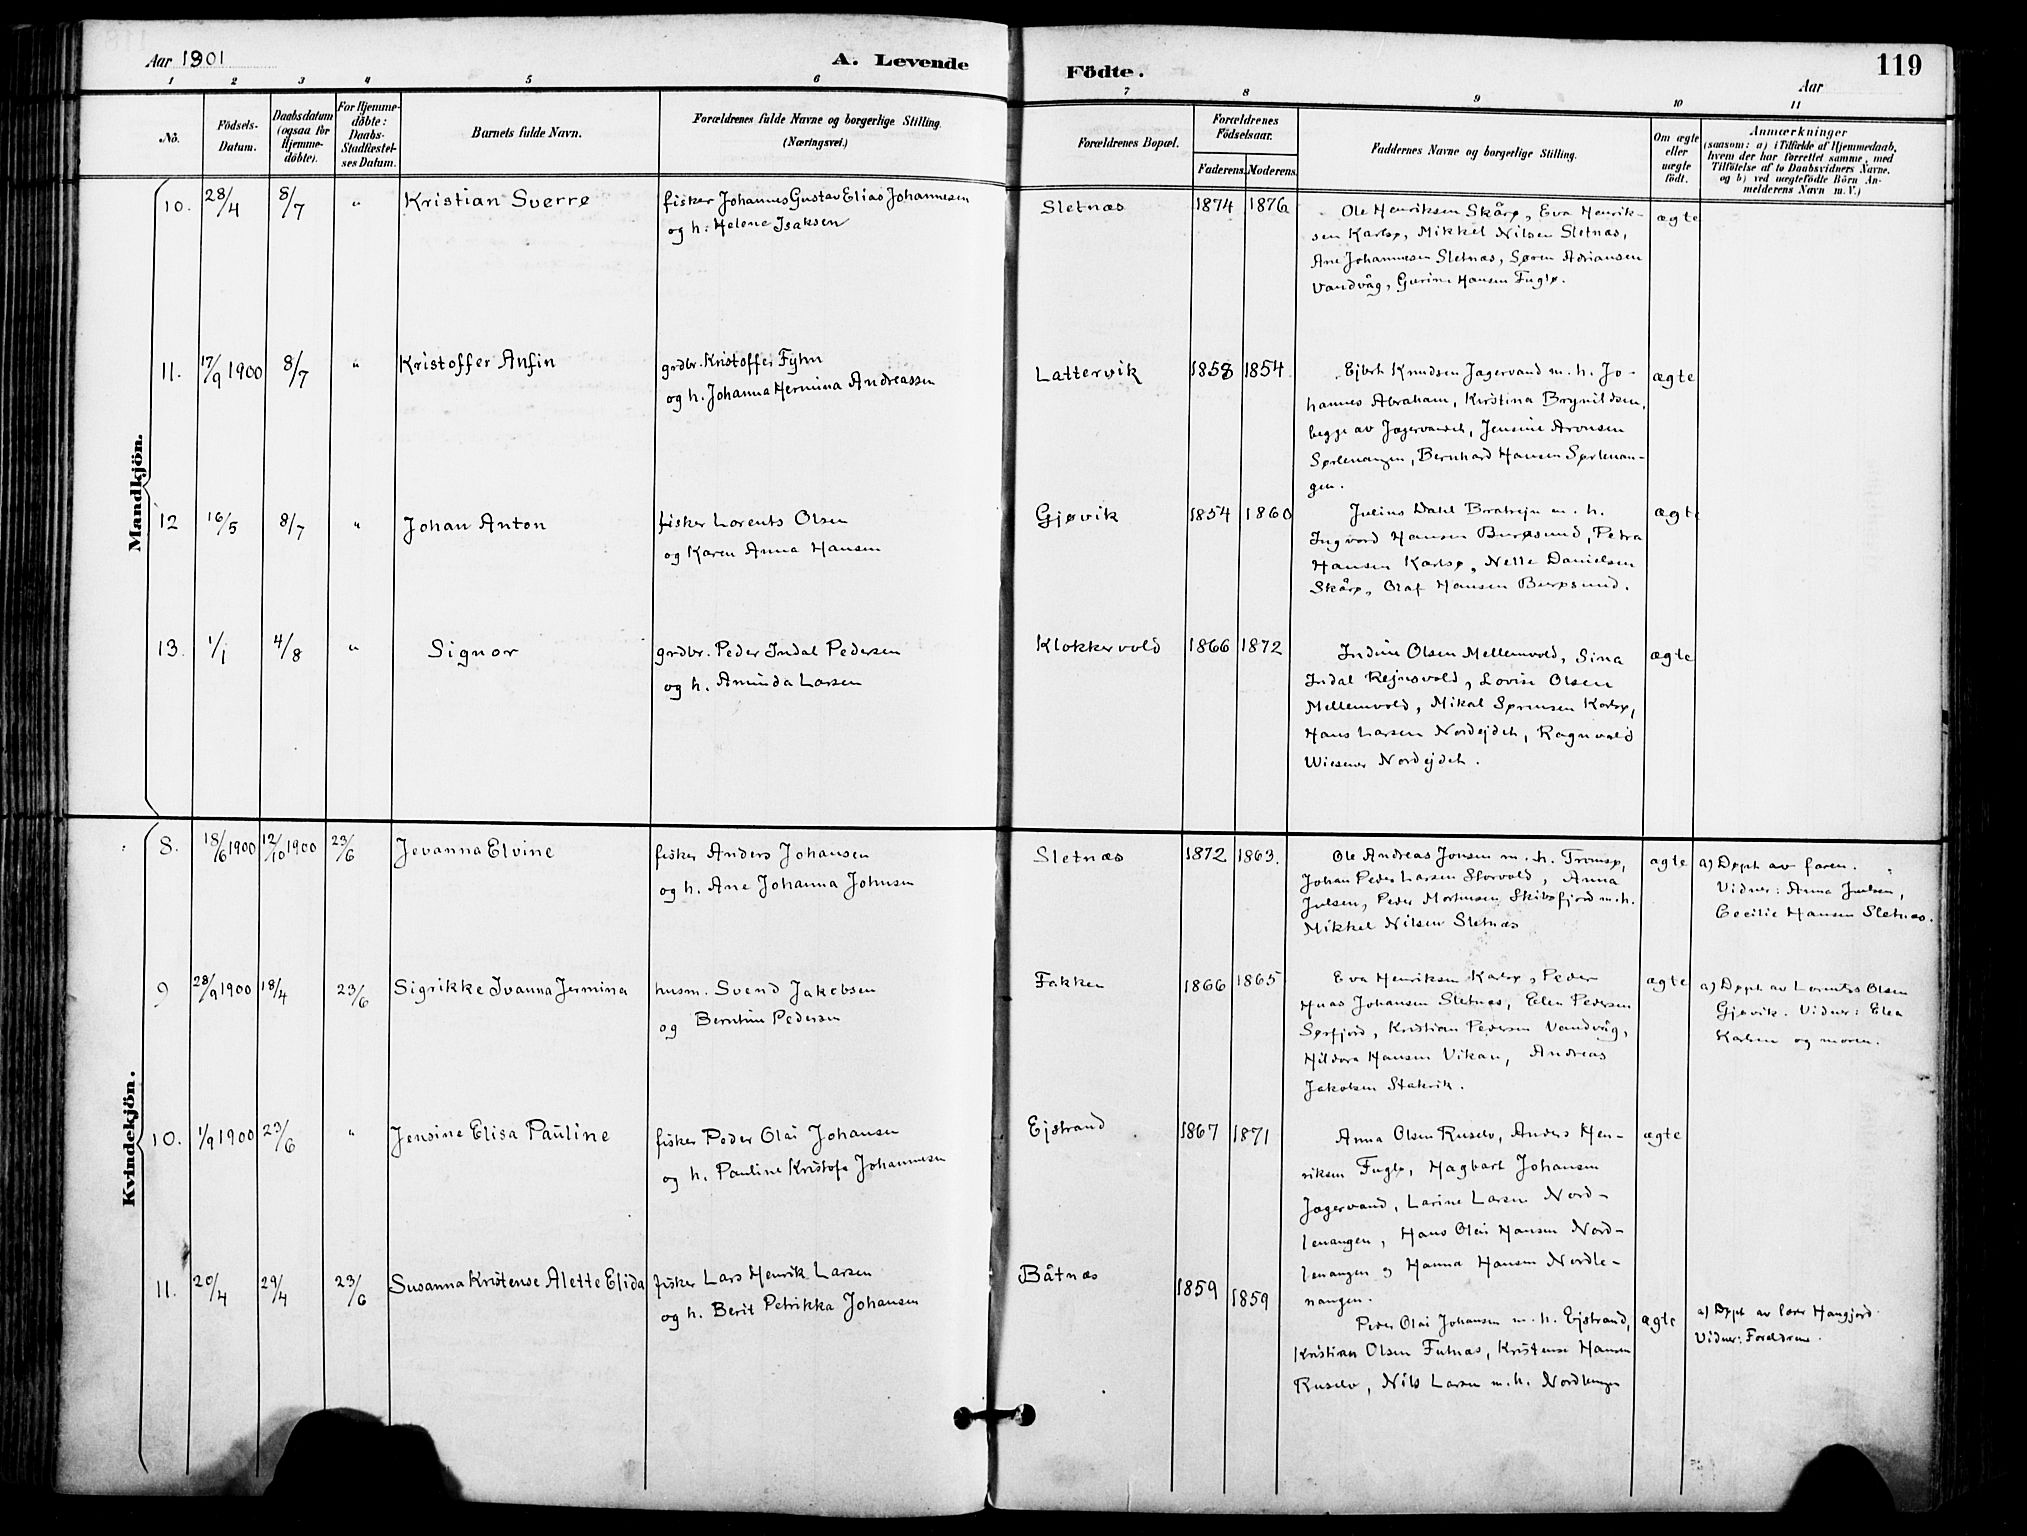 Aar 1901
A. Levende
Födte.
Aar
119
1 2 3 4 5 6 7 8 9 10 11
No.
Födsels-
Datum.
Daabsdatum
(ogsaa for
Hjemme-
döbte).
For Hjemme-
döbte:
Daabs-
Stadfæstel-
ses Datum.
Barnets fulde Navn.
Forældrenes fulde Navne og borgerlige Stilling.
(Næringsvei.)
Forældrenes Bopæl.
Forældrenes
Födselsaar.
Faderens. Moderens.
Faddernes Navne og borgerlige Stilling.
Om ægte
eller
uægte
født.
Anmærkninger
(saasom: a) i Tilfælde af Hjemmedaab,
hvem der har forrettet samme, med
Tilföielse af to Daabsvidners Navne,
og b) ved uægtefödte Börn An-
melderens Navn m. V.)
Mandkjön.
10. 28/4 8/7 " Kristian Sverre
fisker Johannes Gustav Elias Johannesen
og h: Helene Isaksen
Sletnæs 1874 1876
Ole Henriksen Skårø, Eva Henrik-
sen Karlsø, Mikkel Nilsen Sletnæs,
Ane Johannesen Sletnæs, Søren Adriansen
Vandvåg, Gurine Hansen Fuglø.
ægte
11. 17/9 1900 8/7 " Kristoffer Anfin
grdbr. Kristoffer Fyhn
og h. Johanna Hermina Andreassen
Lattervik 1858 1854
Ejbert Knudsen Jagervand m. h. Jo-
hannes Abraham, Kristina Brynildsen,
begge av Jagervandet, Jensine Aronsen
Sørlenangen, Bernhard Hansen Sørlenan-
gen.
ægte
12 16/5 8/7 " Johan Anton
fisker Lorents Olsen
og Karen Anna Hansen
Gjøvik 1854 1860
Julius Dahl Bratrejn m. h.
Ingvard Hansen Burøsund, Petra
Hansen Karlsø, Nelle Danielsen
Skårø, Olaf Hansen Burøsund.
ægte
13. 1/1 4/8 " Signor
grdbr. Peder Indal Pedersen
og h. Aminda Larsen
Klokkervold 1866 1872
Indine Olsen Mellemvold, Sina
Indal Rejnsvold, Lovise Olsen
Mellemvold, Mikal Sørensen Karlsø,
Hans Larsen Nordejdet, Ragnvald
Wiesener Nordejdet.
ægte
Kvindekjön.
8. 18/6 1900 12/10 1900 23/6 Jevanna Elvine
fisker Anders Johansen
og h. Ane Johanna Johnsen
Sletnæs 1872 1863.
Ole Andreas Jonsen m. h. Tromsø,
Johan Peder Larsen Storvold, Anna
Julsen, Peder Mortensen Skibsfjord m. h.
Mikkel Nilsen Sletnæs
ægte
a) Døpt av faren.
Vidner: Anna Julsen,
Cecilie Hansen Sletnæs.
9 28/9 1900 18/4 23/6 Sigrikke Ivanna Jermina
husm. Svend Jakobsen
og Berntine Pedersen
Fakken 1866 1865
Eva Henriksen Karlsø, Peder
Hnas Johansen Sletnæs, Elen Pedersen
Sørfjord, Kristian Pedersen Vandvåg,
Hildora Hansen Vikan, Andreas
Jakobsen Stakvik.
ægte
a) Døpt av Lorents Olsen
Gjøvik. Vidner: Elea
Karlsen og moren.
10. 1/9 1900 23/6 " Jensine Elisa Pauline
fisker Peder Olai Johansen
og h. Pauline Kristofa Johannesen
Ejstrand 1867 1871
Anna Olsen Ruselv, Anders Hen-
riksen Fuglø, Hagbart Johansen
Jagervand, Larine Larsen Nord-
lenangen, Hans Olai Hansen Nord-
lenangen og Hanna Hansen Nordle-
nangen.
ægte
11. 20/4 29/4 23/6 Susanna Kristense Alette Elida
fisker Lars Henrik Larsen
og h. Berit Petrikka Johansen
Båtnæs 1859 1859
Peder Olai Johansen m. h. Ejstrand,
Kristian Olsen Futnæs, Kristense Hansen
Ruselv, Nils Larsen m. h. Nordlenangen
ægte
a) Døpt av lærer Hangjord.
Vidner: Forældrene.